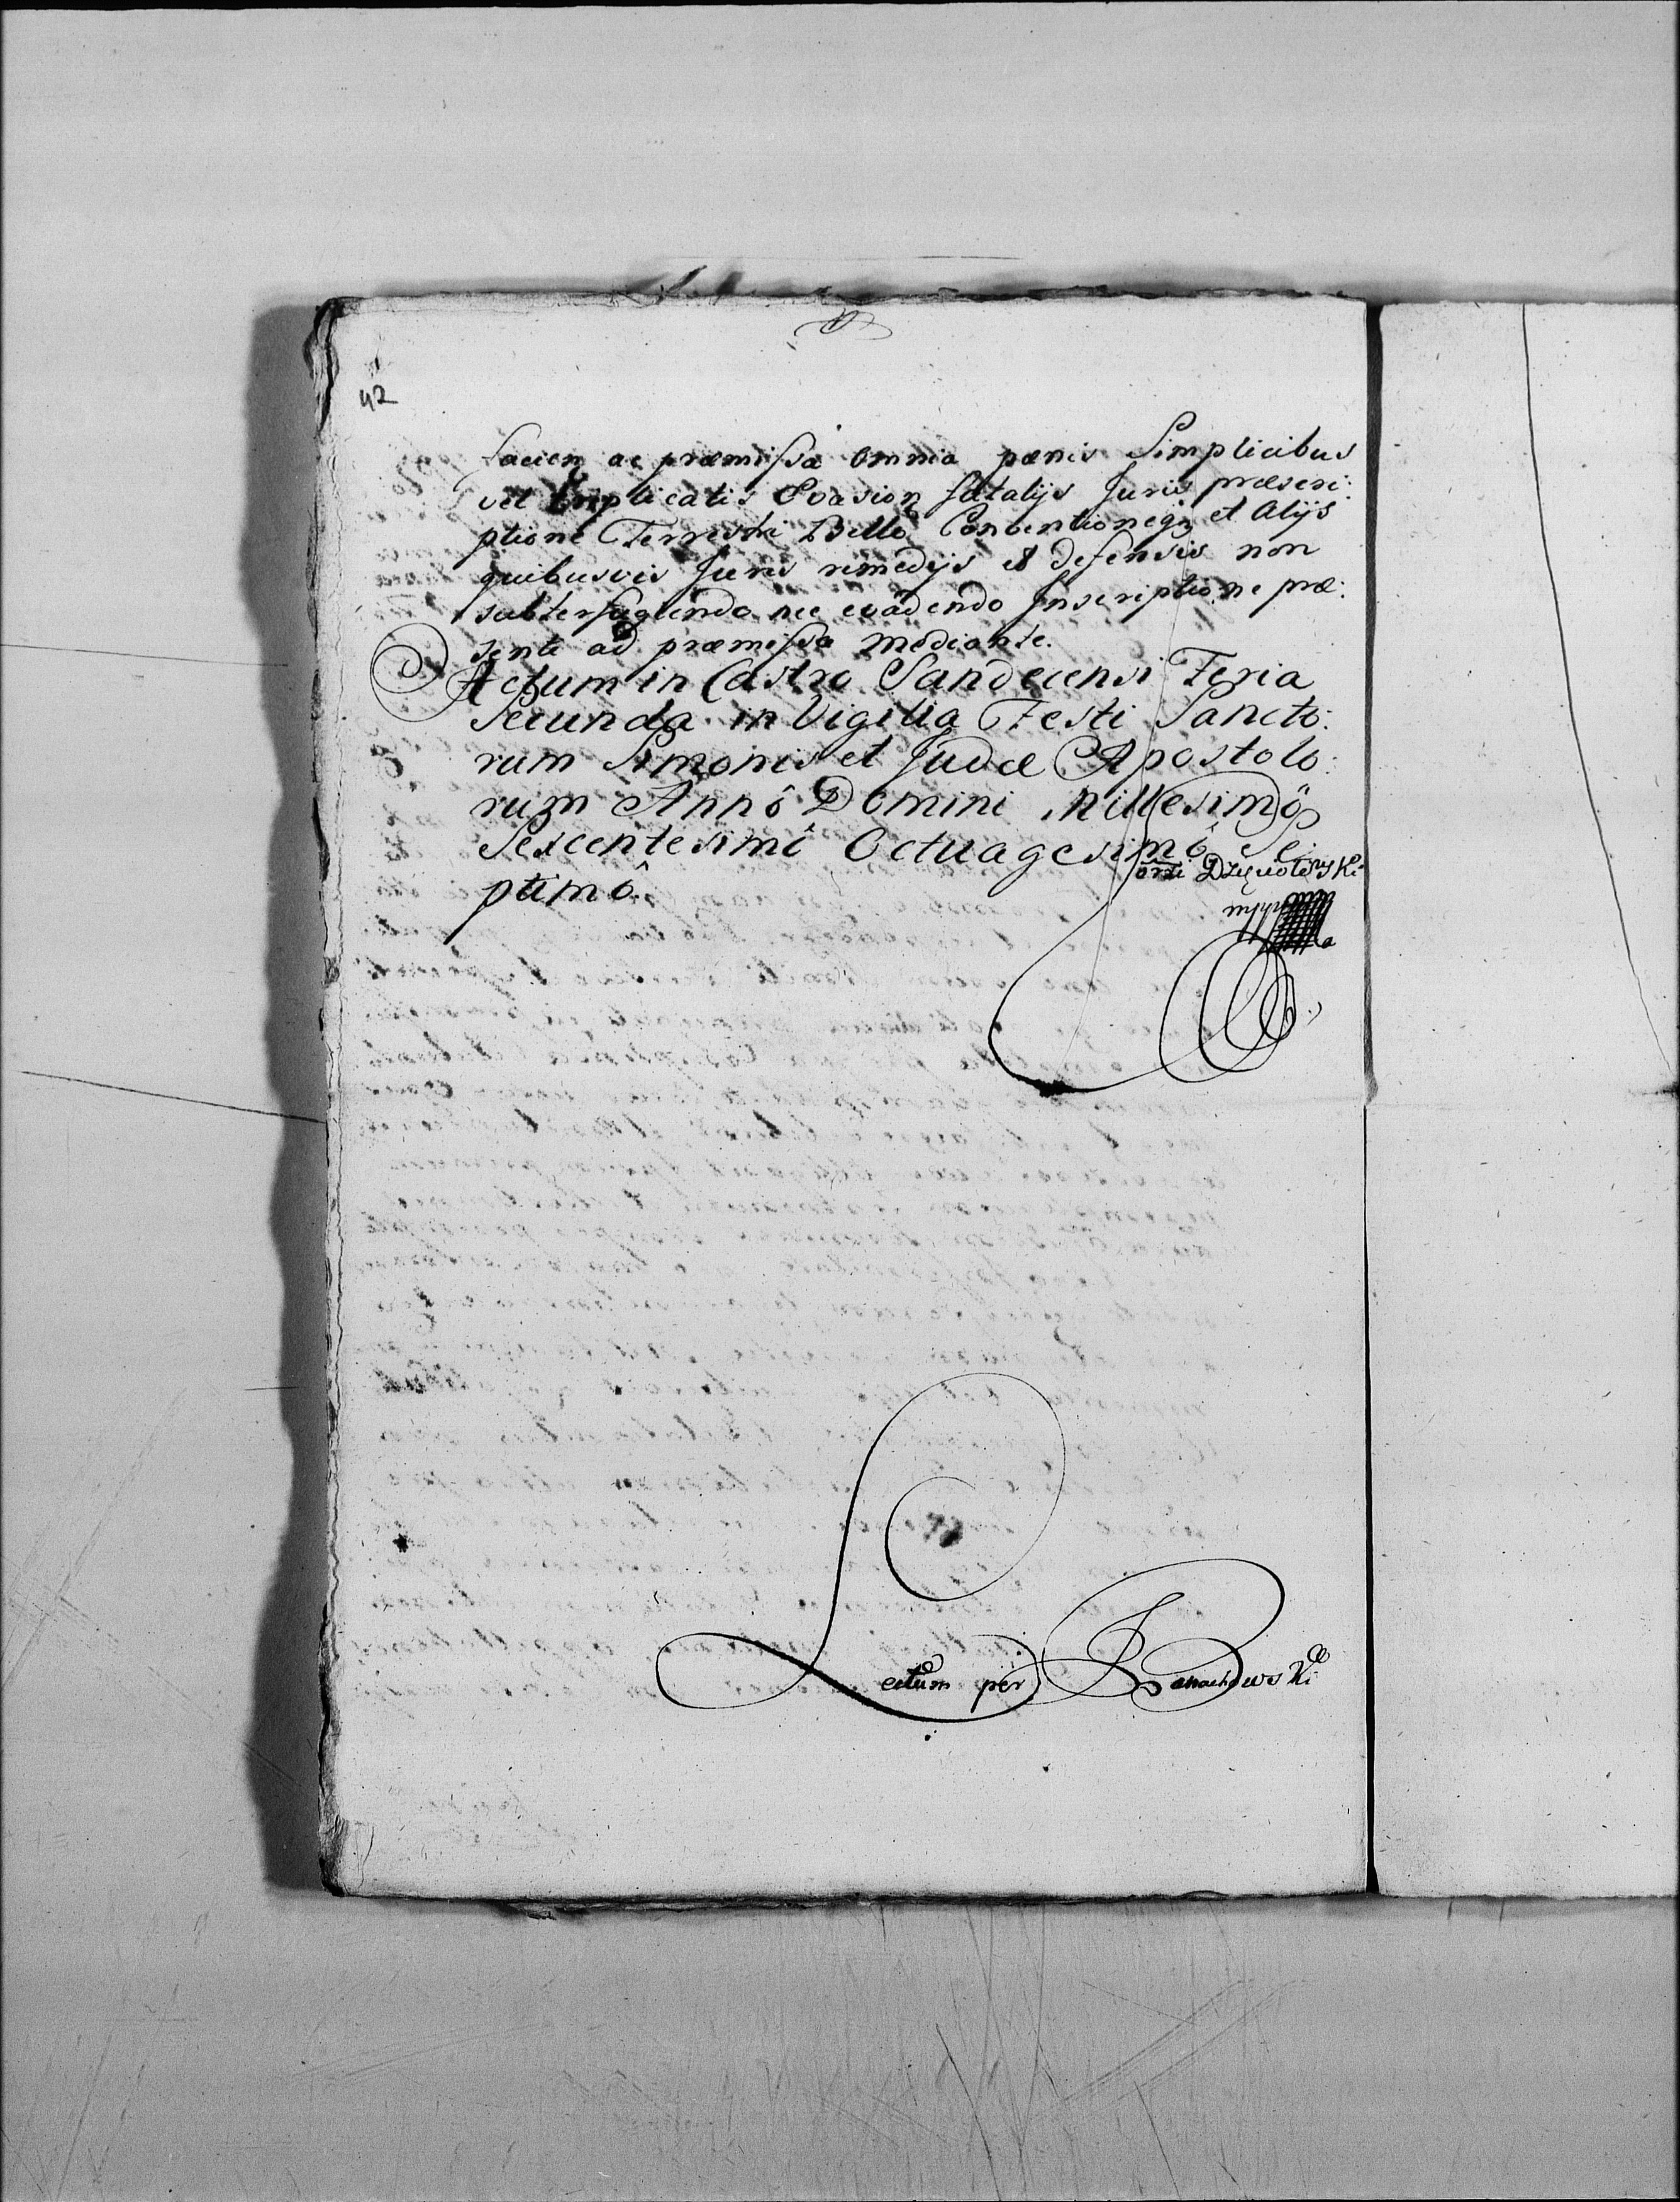 42
facien ac præmissa omnia pænis Simplicibus
vel Implicatis Evasion fatalijs Juris præscri:
ptione Terrestri Bello Conventioneq et Alijs
quibusvis Juris remedijs et defensis non
subterfugiendo nec evadendo Inscriptione præ:
senti ad præmissa mediante.
Actum in Castro Sandecensi Feria
Secunda in Vigilia Festi Sancto:
rum Simonis et Judæ Apostolo:
rum Annô Domini Millesimô
Sexcentesimô Octuagesimô Se
ptimô.
mpp
Lectum per